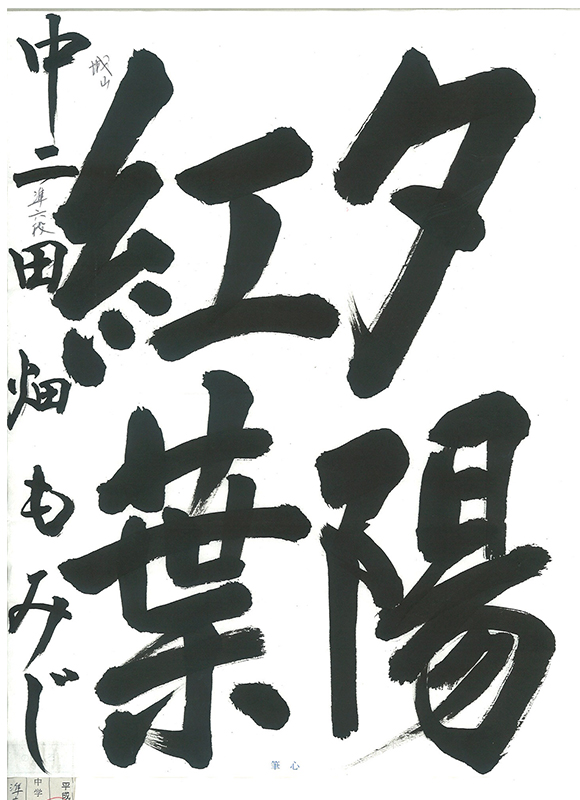 夕陽
紅葉
中二 田畑もみじ
城山
準六段
筆心
平成
中学
準